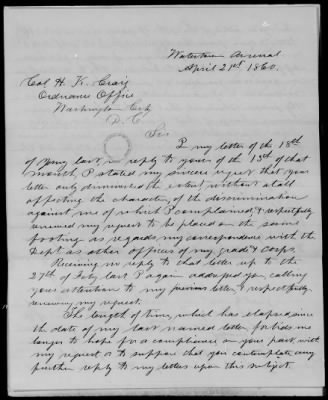 Watertown Arsenal
April 21st 1860.
Col H. K. Craig
Ordnance Office
Washington City
D. C.
Sir
In my letter of the 18th
of May last, in reply to yours of the 13th of that
month, I stated my sincere regret that your
letter only diminished the extent, without at all
affecting the character, of the discrimination
against me of which I complained, & respectfully
renewed my request to be placed on the same
footing as regards my correspondence with the
Dept. as other officers of my grade & Corps.
Receiving no reply to that letter up to the
27th of July last I again addressed you, calling
your attention to my previous letter, & respectfully
renewing my request.
The length of time, which has elapsed since
the date of my last named letter, forbids me
longer to hope for a compliance on your part with
my request or to suppose that you contemplate any
further reply to my letters upon this subject.